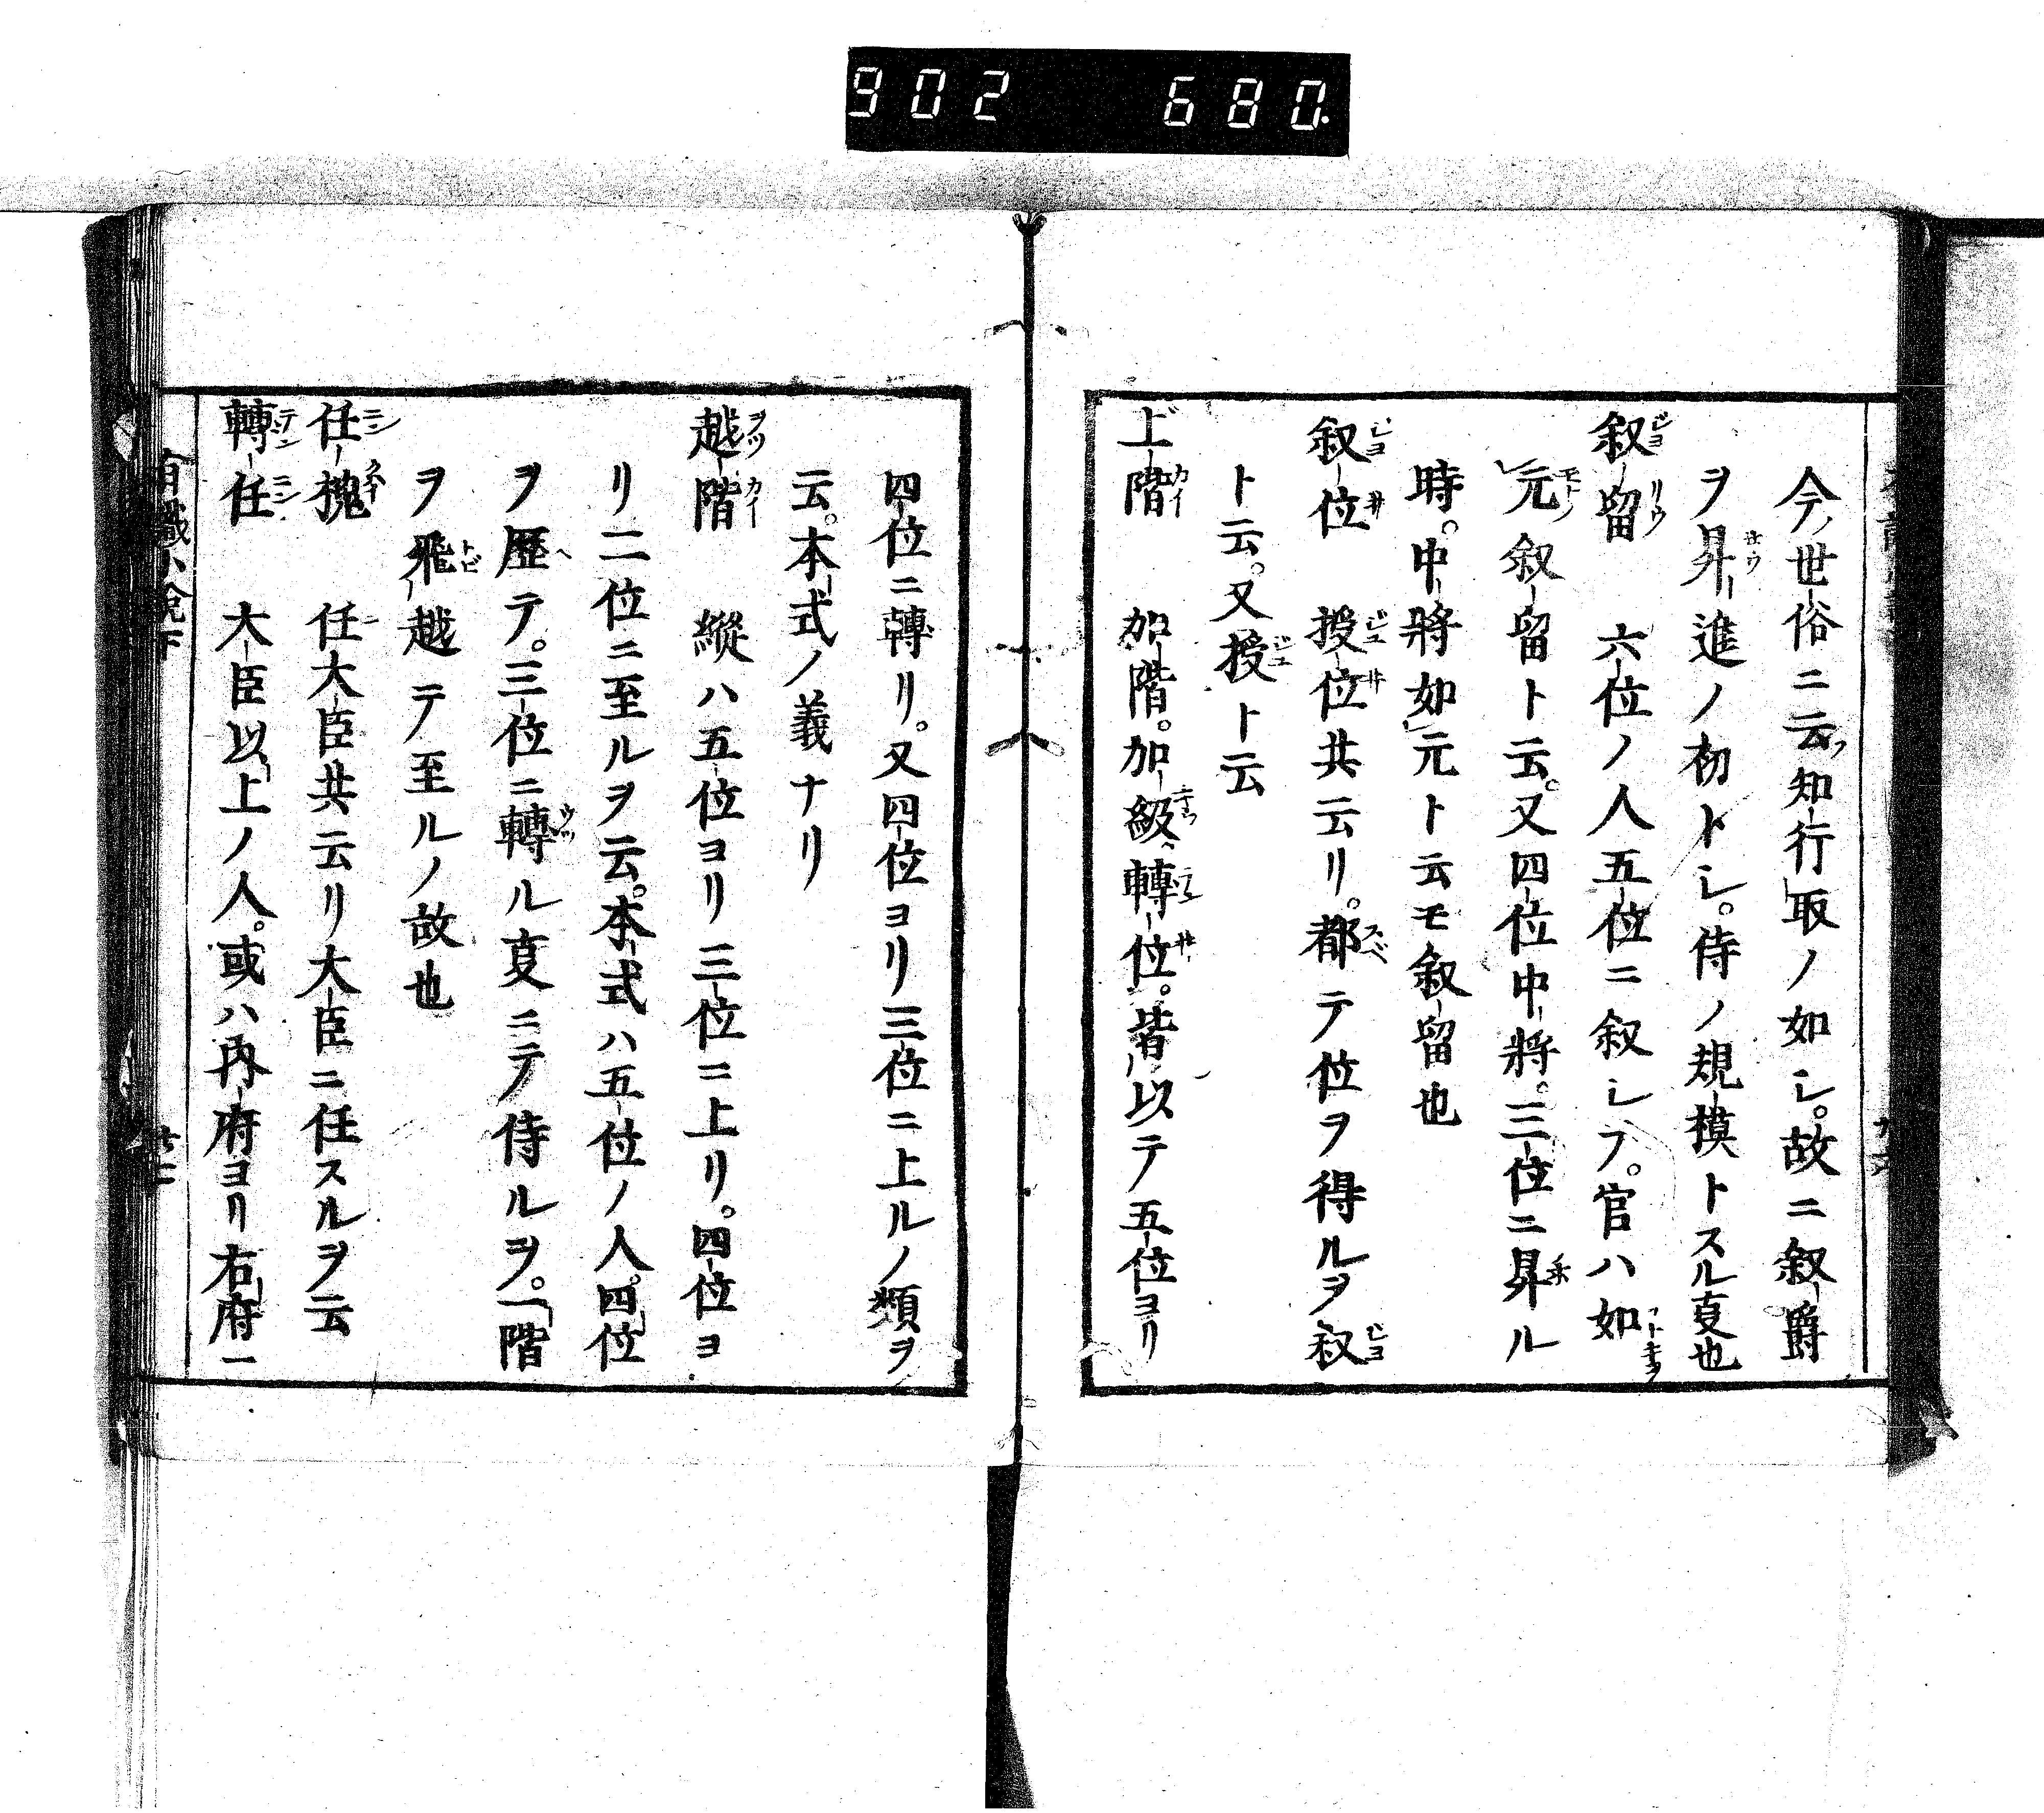 902 680
今世俗ニ云知行取ノ如シ。故ニ叙爵
ヲ昇進ノ初トシ。侍ノ規模トスル㕝也
叙留 六位ノ人五位ニ叙シフ。官ハ如
元叙留ト云。又四位中將。三位ニ昇ル
時。中將如元ト云モ叙留也
叙位 授位共云リ。都テ位ヲ得ルヲ叙
ト云。又授ト云
上階 加階。加級、轉位。皆以テ五位ヨリ
四位ニ轉リ。又四位ヨリ三位ニ上ルノ類ヲ
云。本式ノ義ナリ
越階 縱ハ五位ヨリ三位ニ上リ。四位ヨ
リ二位ニ至ルヲ云。本式ハ五位ノ人。四位
ヲ歷テ。三位ニ轉ル㕝ニテ侍ルヲ。一階
ヲ飛越テ至ルノ故也
任槐 任大臣共云リ大臣ニ任スルヲ云
轉任 大臣以上ノ人。或ハ內府ヨリ右府一
有職小說下